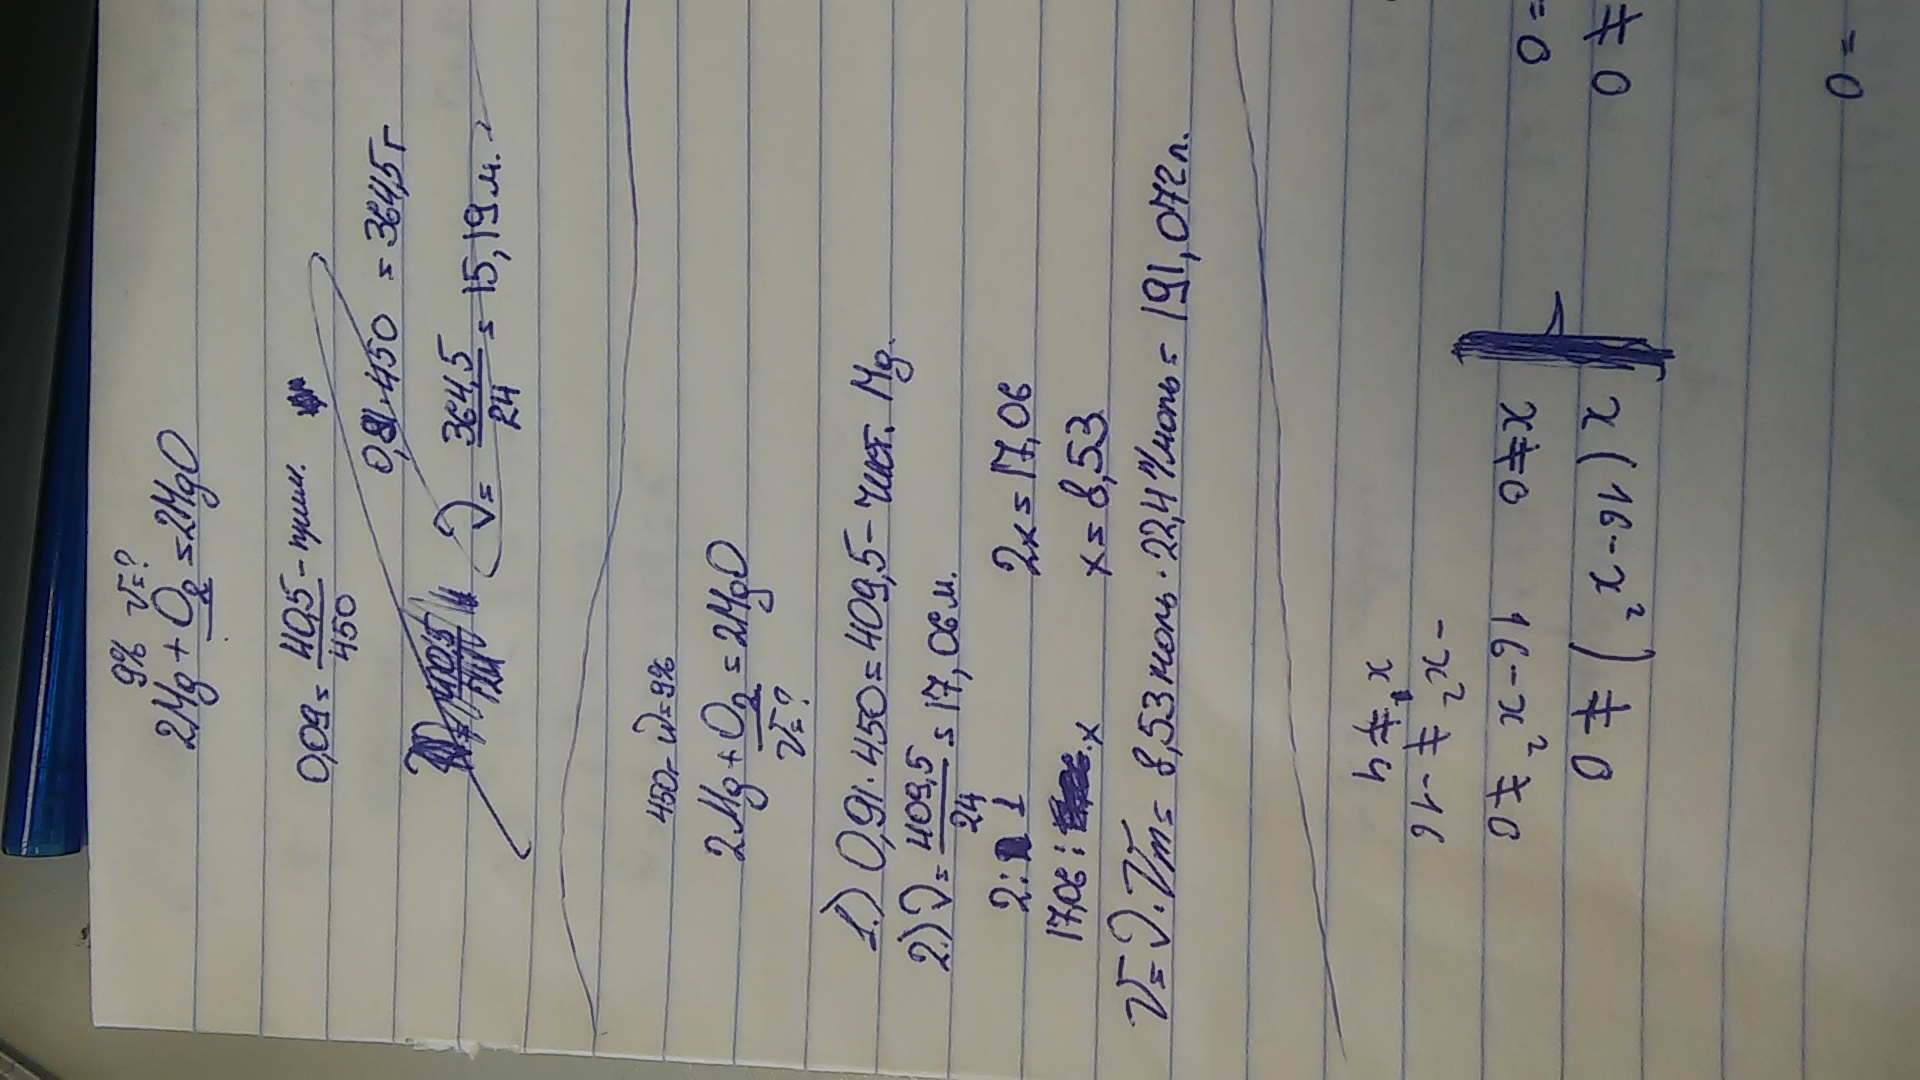 9% V=?
2Mg + O2 = 2MgO
0,09 = 40,5/450 - прим.
0,81·450 = 364,5 г
ν = 364,5/24 = 15,19 м.
450г ω=9%
2Mg + O2 = 2MgO
V=?
1.) 0,91·450=409,5 - чист. Mg.
2.) ν = 409,5/24 = 17,06 м.
2:1 2x=17,06
17,06:x x=8,53
V= ν·Vm= 8,53 моль·22,4 л/моль= 191,072 л.
0=
0 ≠
0 =
x(16-x²) ≠ 0
x≠0 16-x²≠0
-x²≠-16
x≠4